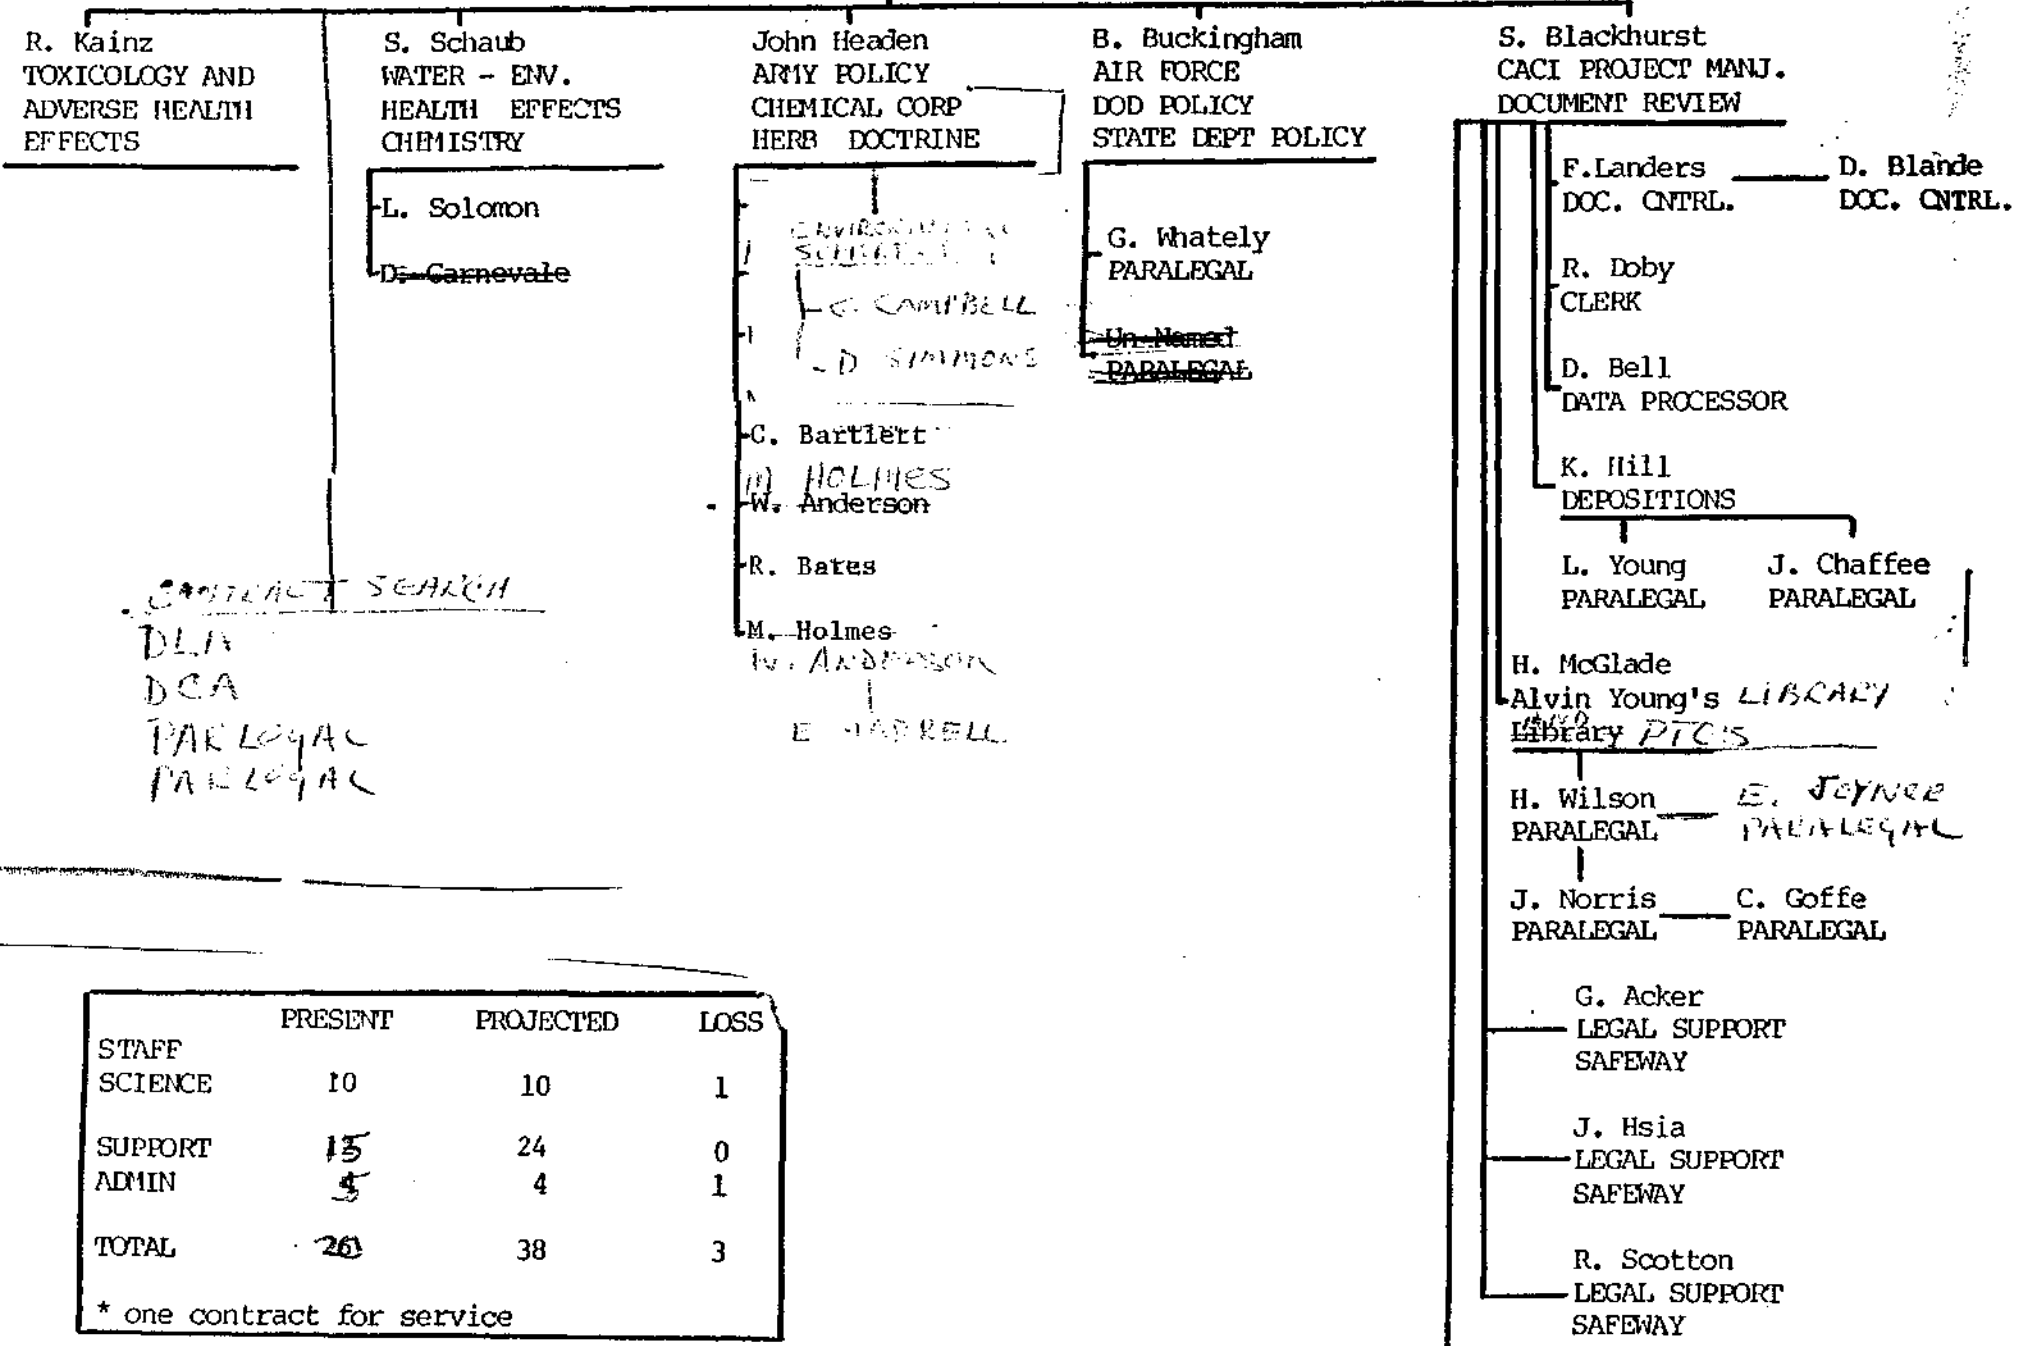 R. Kainz
TOXICOLOGY AND
ADVERSE HEALTH
EFFECTS
S. Schaub
WATER - ENV.
HEALTH EFFECTS
CHEMISTRY
L. Solomon
D. Carnevale
John Headen
ARMY POLICY
CHEMICAL CORP
HERB DOCTRINE
C. CAMPBELL
D SIMMONS
C. Bartlett
M HOLMES
W. Anderson
R. Bates
M. Holmes
W. ANDERSON
E HARRELL
B. Buckingham
AIR FORCE
DOD POLICY
STATE DEPT POLICY
G. Whately
PARALEGAL
Un-Named
PARALEGAL
S. Blackhurst
CACI PROJECT MANJ.
DOCUMENT REVIEW
F.Landers
DOC. CNTRL.
D. Blande
DOC. CNTRL.
R. Doby
CLERK
D. Bell
DATA PROCESSOR
K. Hill
DEPOSITIONS
L. Young
PARALEGAL
J. Chaffee
PARALEGAL
H. McGlade
Alvin Young's LIBRARY
Library AND PTOS
H. Wilson
PARALEGAL
E. JOYNER
PARALEGAL
J. Norris
PARALEGAL
C. Goffe
PARALEGAL
G. Acker
LEGAL SUPPORT
SAFEWAY
J. Hsia
LEGAL SUPPORT
SAFEWAY
R. Scotton
LEGAL SUPPORT
SAFEWAY
CONTRACT SEARCH
DLA
DCA
PARLEGAL
PARLEGAL
PRESENT PROJECTED LOSS
STAFF
SCIENCE 10 10 1
SUPPORT 24 0
ADMIN 4 1
TOTAL 38 3
* one contract for service